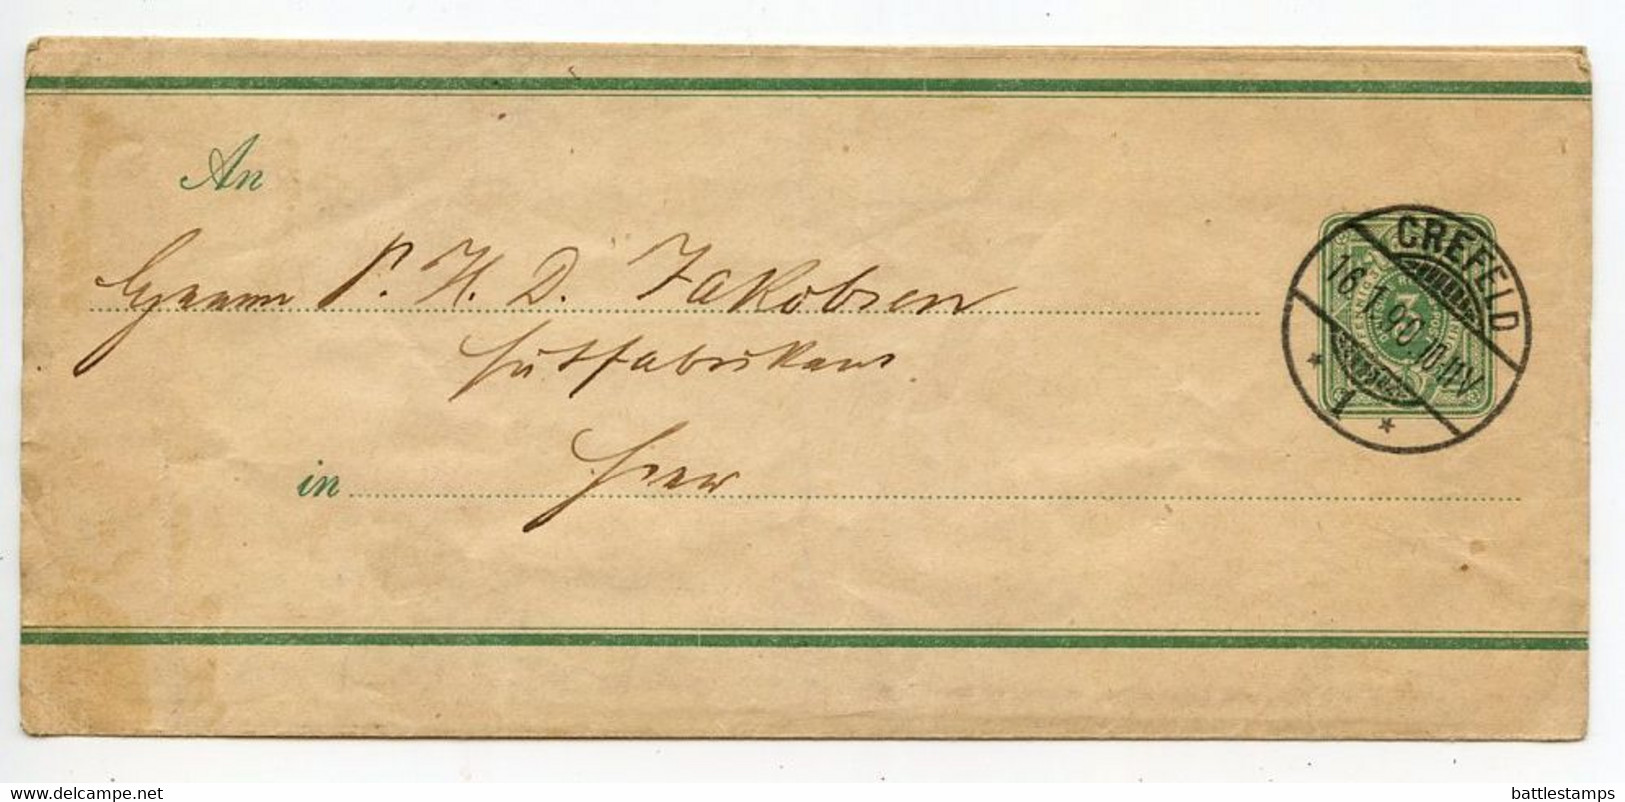 An
P. H. D. Jakobsen
Hutfabrikant
in Hier
CREFELD
16.1.90.10-11V
1
3
www.delcampe.net
battlestamps